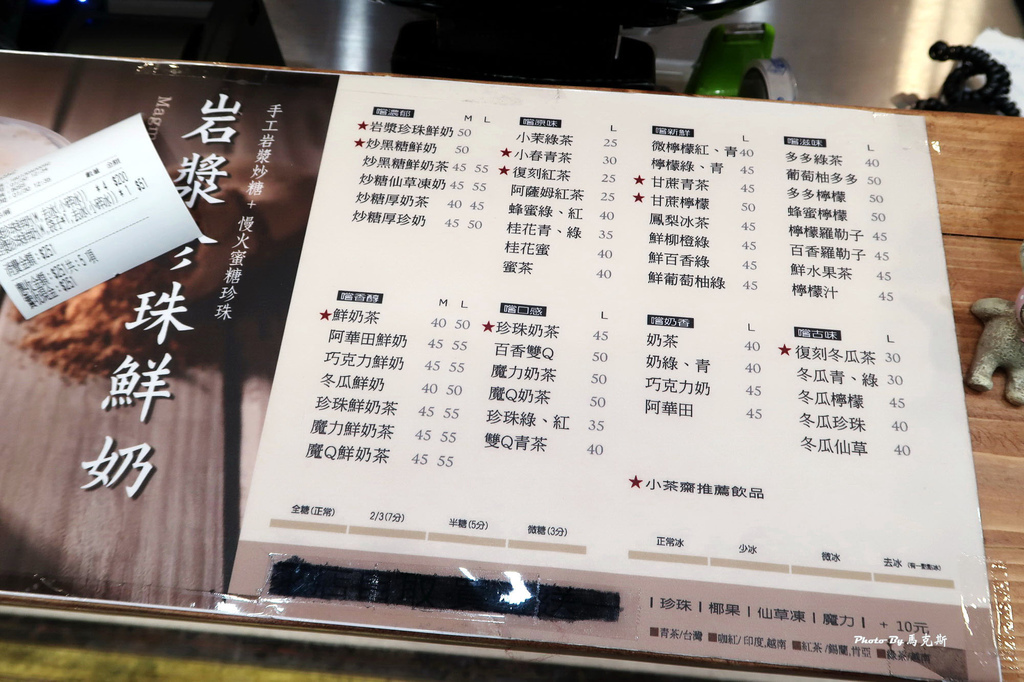 岩漿珍珠鮮奶
手工岩漿炒糖+慢火蜜糖珍珠
嚐濃郁 M L
★岩漿珍珠鮮奶 50
★炒黑糖鮮奶 50
炒黑糖鮮奶茶 45 55
炒糖仙草凍奶 45 55
炒糖厚奶茶 40 45
炒糖厚珍奶 45 50
嚐原味 L
小茉綠茶 25
★小春青茶 30
★復刻紅茶 25
阿薩姆紅茶 25
蜂蜜綠、紅 40
桂花青、綠 35
桂花蜜 40
蜜茶 40
嚐新鮮 L
微檸檬紅、青 40
檸檬綠、青 50
★甘蔗青茶 50
★甘蔗檸檬 50
鳳梨冰茶 50
鮮柳橙綠 50
鮮百香綠 50
鮮葡萄柚綠 50
嚐滋味 L
多多綠茶 40
葡萄柚多多 50
多多檸檬 50
蜂蜜檸檬 50
檸檬羅勒子 45
百香羅勒子 45
鮮水果茶 45
檸檬汁 45
嚐香醇 M L
★鮮奶茶 40 50
阿華田鮮奶 45 55
巧克力鮮奶 45 55
冬瓜鮮奶 40 50
珍珠鮮奶茶 45 55
魔力鮮奶茶 45 55
魔Q鮮奶茶 45 55
嚐口感 L
★珍珠奶茶 45
百香雙Q 50
魔力奶茶 50
魔Q奶茶 50
珍珠綠、紅 35
雙Q青茶 40
嚐奶香 L
奶茶 40
奶綠、青 40
巧克力奶 45
阿華田 45
嚐古味 L
★復刻冬瓜茶 30
冬瓜青、綠 30
冬瓜檸檬 45
冬瓜珍珠 40
冬瓜仙草 40
★小茶齋推薦飲品
全糖(正常) 2/3(7分) 半糖(5分) 微糖(3分) 正常冰 少冰 微冰 去冰
| 珍珠 | 椰果 | 仙草凍 | 魔力 | + 10元
■青茶/台灣 ■咖紅/印度,越南 ■紅茶/錫蘭,肯亞 ■綠茶/越南
Photo By 馬克斯